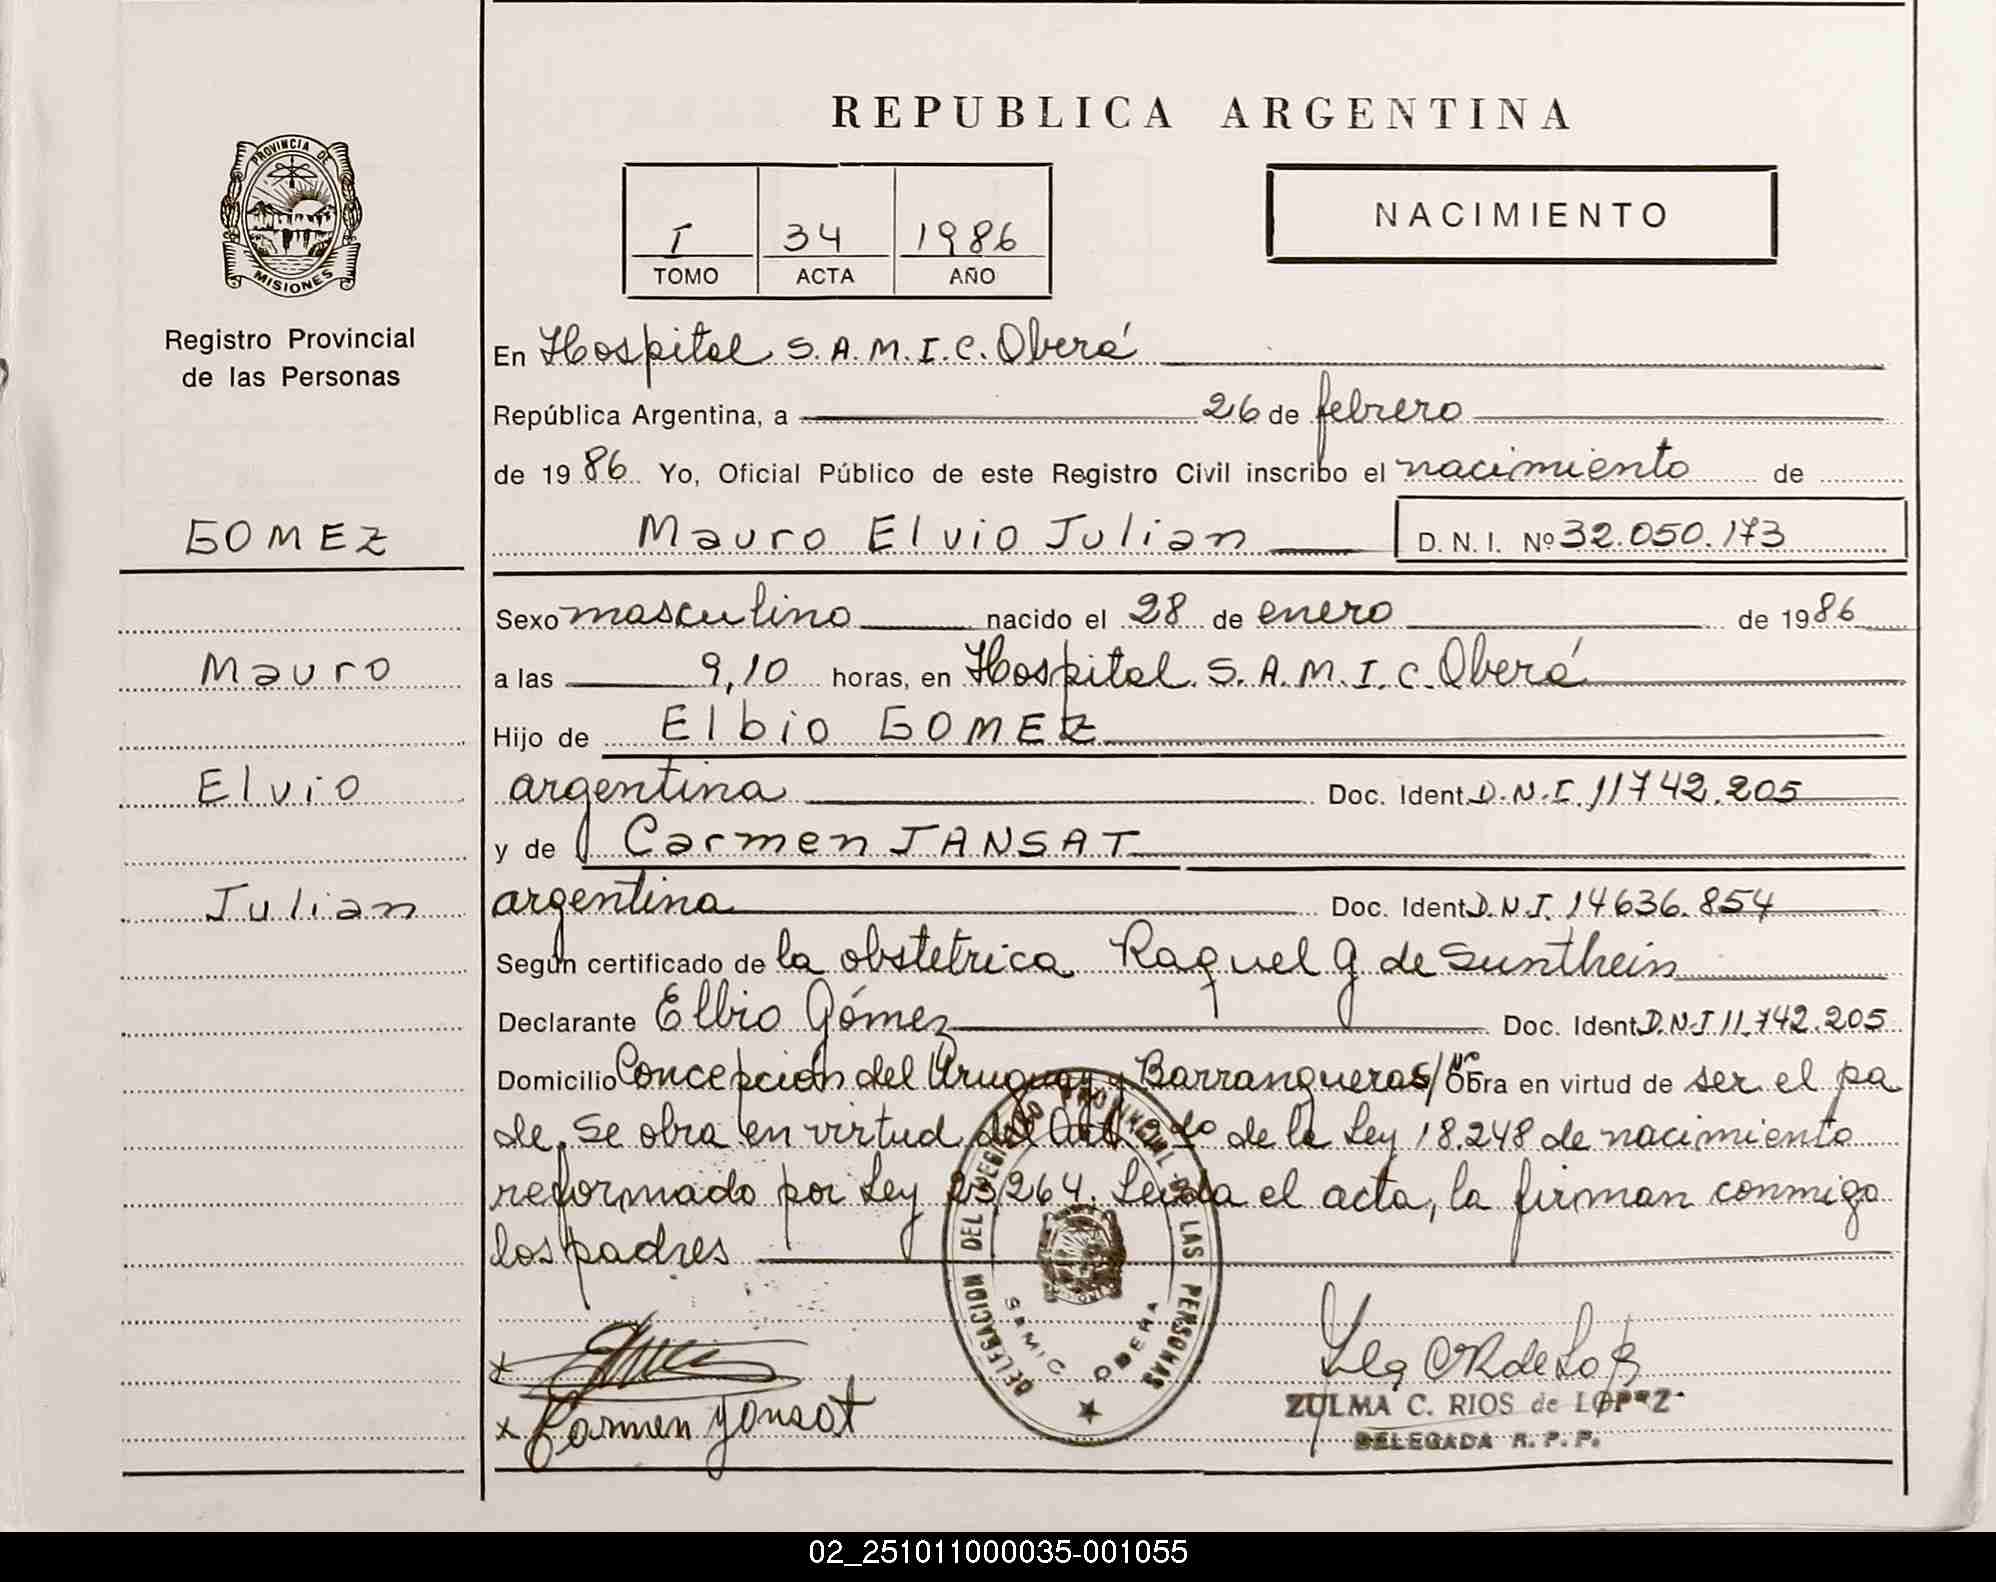 REPUBLICA ARGENTINA
PROVINCIA DE
MISIONES
Registro Provincial
de las Personas
I 34 1986
TOMO ACTA AÑO
NACIMIENTO
En Hospital S.A.M.I.C. Oberá
República Argentina, a 26 de febrero
de 1986 Yo, Oficial Público de este Registro Civil inscribo el nacimiento de
GOMEZ
Mauro Elvio Julian D. N. I. Nº 32.050.173
Sexo masculino nacido el 28 de enero de 1986
Mauro
a las 9,10 horas, en Hospital S.A.M.I.C. Oberá
Hijo de Elbio GOMEZ
Elvio
argentina Doc. Ident. D.N.I. 11742.205
y de Carmen JANSAT
Julian
argentina Doc. Ident D.N.I. 14636.854
Según certificado de la obstetrica Raquel G de Sunthein
Declarante Elbio Gómez Doc. Ident. D.N.I 11.742.205
Domicilio Concepción del Uruguay y Barranqueras S/Nº Obra en virtud de ser el pa
de. Se obra en virtud del Art 2do de la Ley 18.248 de nacimiento
reformado por Ley 23264. Leida el acta, la firman conmigo
los padres
DELEGACION DEL REGISTRO PROVINCIAL DE LAS PERSONAS
SAMIC OBERA
x
x Carmen Yansat
ZULMA C. RIOS de LOPEZ
DELEGADA R. P. P.
02_251011000035-001055